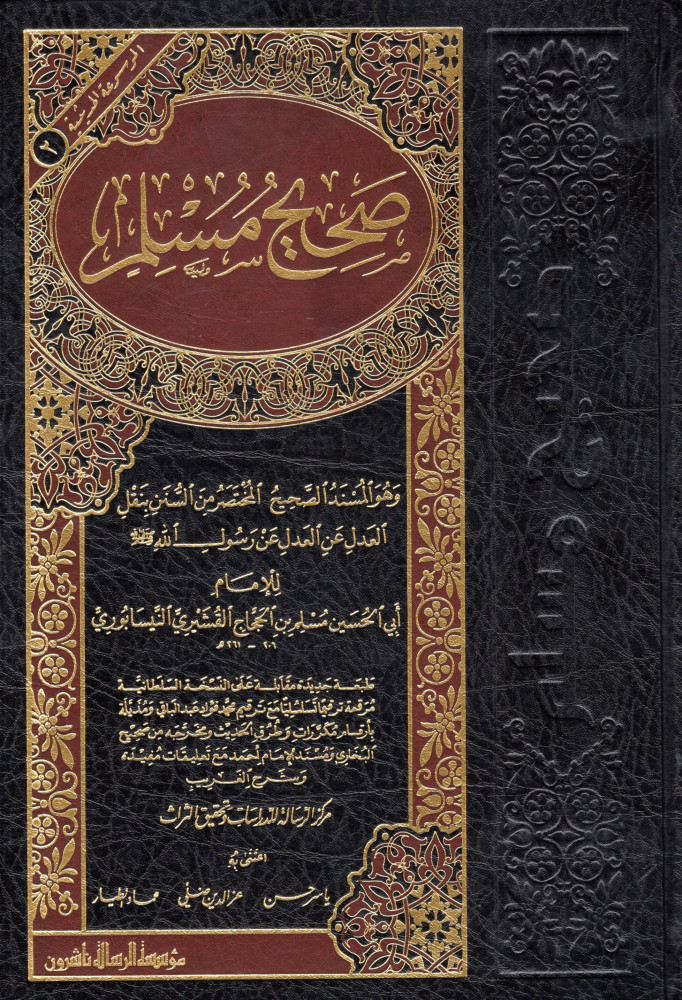 الموسوعة الحديثية
٢
صَحِيحُ مُسْلِمٍ
وَهُوَ المُسْنَدُ الصَّحِيحُ المُخْتَصَرُ مِنَ السُّنَنِ بِنَقْلِ
العَدْلِ عَنِ العَدْلِ عَنْ رَسُولِ اللهِ ﷺ
لِلإِمَامِ
أَبِي الحُسَيْنِ مُسْلِمِ بنِ الحَجَّاجِ القُشَيْرِيِّ النَّيْسَابُورِيِّ
٢٠٦ - ٢٦١ هـ
طبعة جديدة مقابلة على النسخة السلطانية
مرقمة ترقيمًا تسلسليًا مع ترقيم محمد فؤاد عبد الباقي ومذيلة
بأرقام مكررات وطرق الحديث وتخريجه من صحيح
البخاري ومسند الإمام أحمد مع تعليقات مفيدة
وبشرح الغريب
مركز الرسالة للدراسات وتحقيق التراث
اعتنى به
ياسر حسن عز الدين ضلي عماد الطيار
مؤسسة الرسالة ناشرون
صحيح مسلم